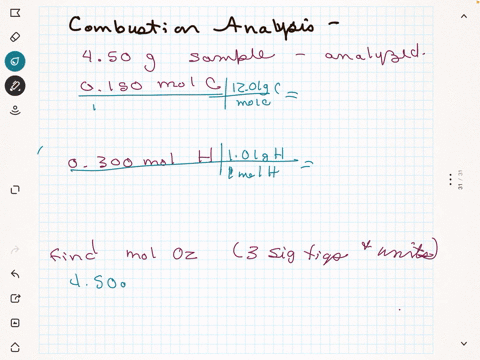 Combustion Analysis -
4.50 g sample - analyzed.
0.150 mol C | 12.01g C =
1 molC
0.300 mol H | 1.01g H =
1 mol H
find mol O2 (3 sig figs & units)
4.50
31 / 31